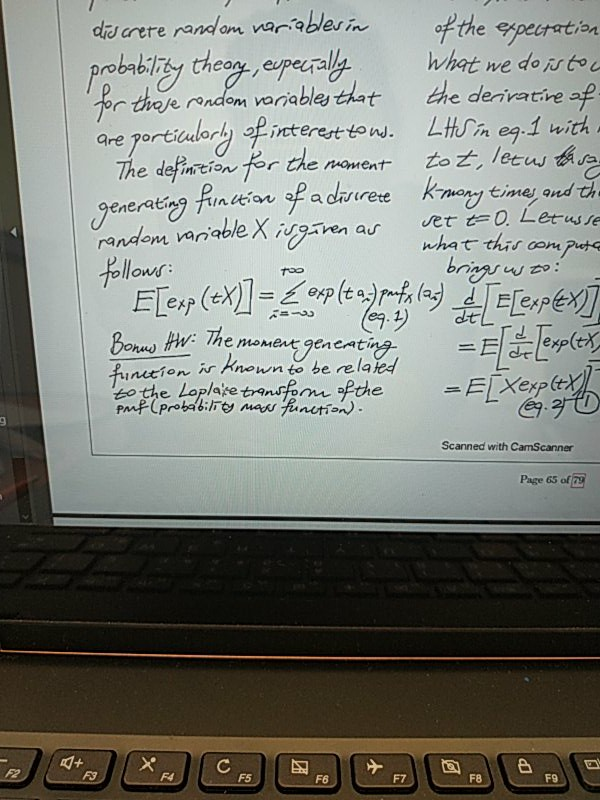 discrete random variables in
probability theory, especially
for those random variables that
are particularly of interest to us.
The definition for the moment
generating function of a discrete
random variable X is given as
follows:
E[exp(tX)] = Σ exp(t aᵢ) pmfₓ(aᵢ)
+∞
i=-∞
(eq.1)
Bonus HW: The moment generating
function is known to be related
to the Laplace transform of the
pmf (probability mass function).
of the expectation
What we do is to
the derivative of
LHS in eq.1 with
to t, let us say
K-many times, and
set t=0. Let us
what this
brings us to:
d/dt[E[exp(tX)]]
= E[d/dt[exp(tX
= E[X exp(tX)]
(eq.2) 1
Scanned with CamScanner
Page 65 of 79
F2
F3
F4
F5
F6
F7
F8
F9